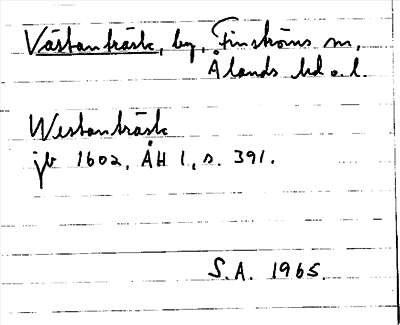 Västanträsk, by, Finströms sn,
Ålands hd o. l.
Westanträsk
jb 1602, ÅH 1, s. 391.
S.A. 1965.